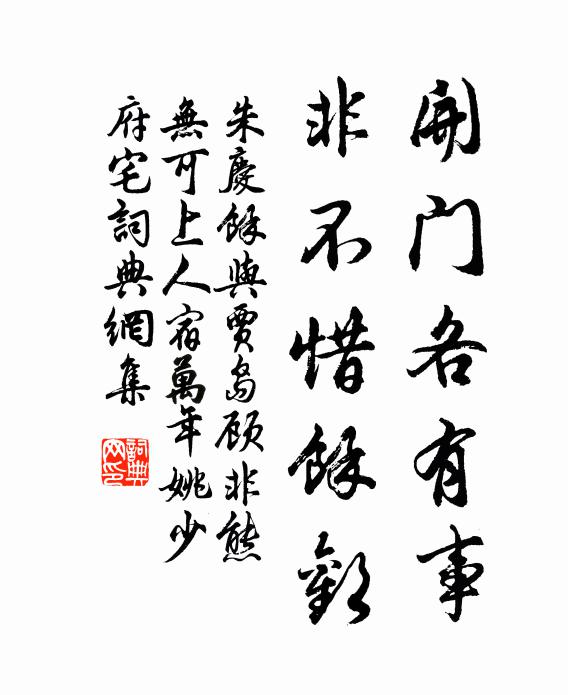 開门各有事
非不惜餘歡
朱慶餘與賈島顾非熊
無可上人宿萬年姚少
府宅詞典網集
詞典网印